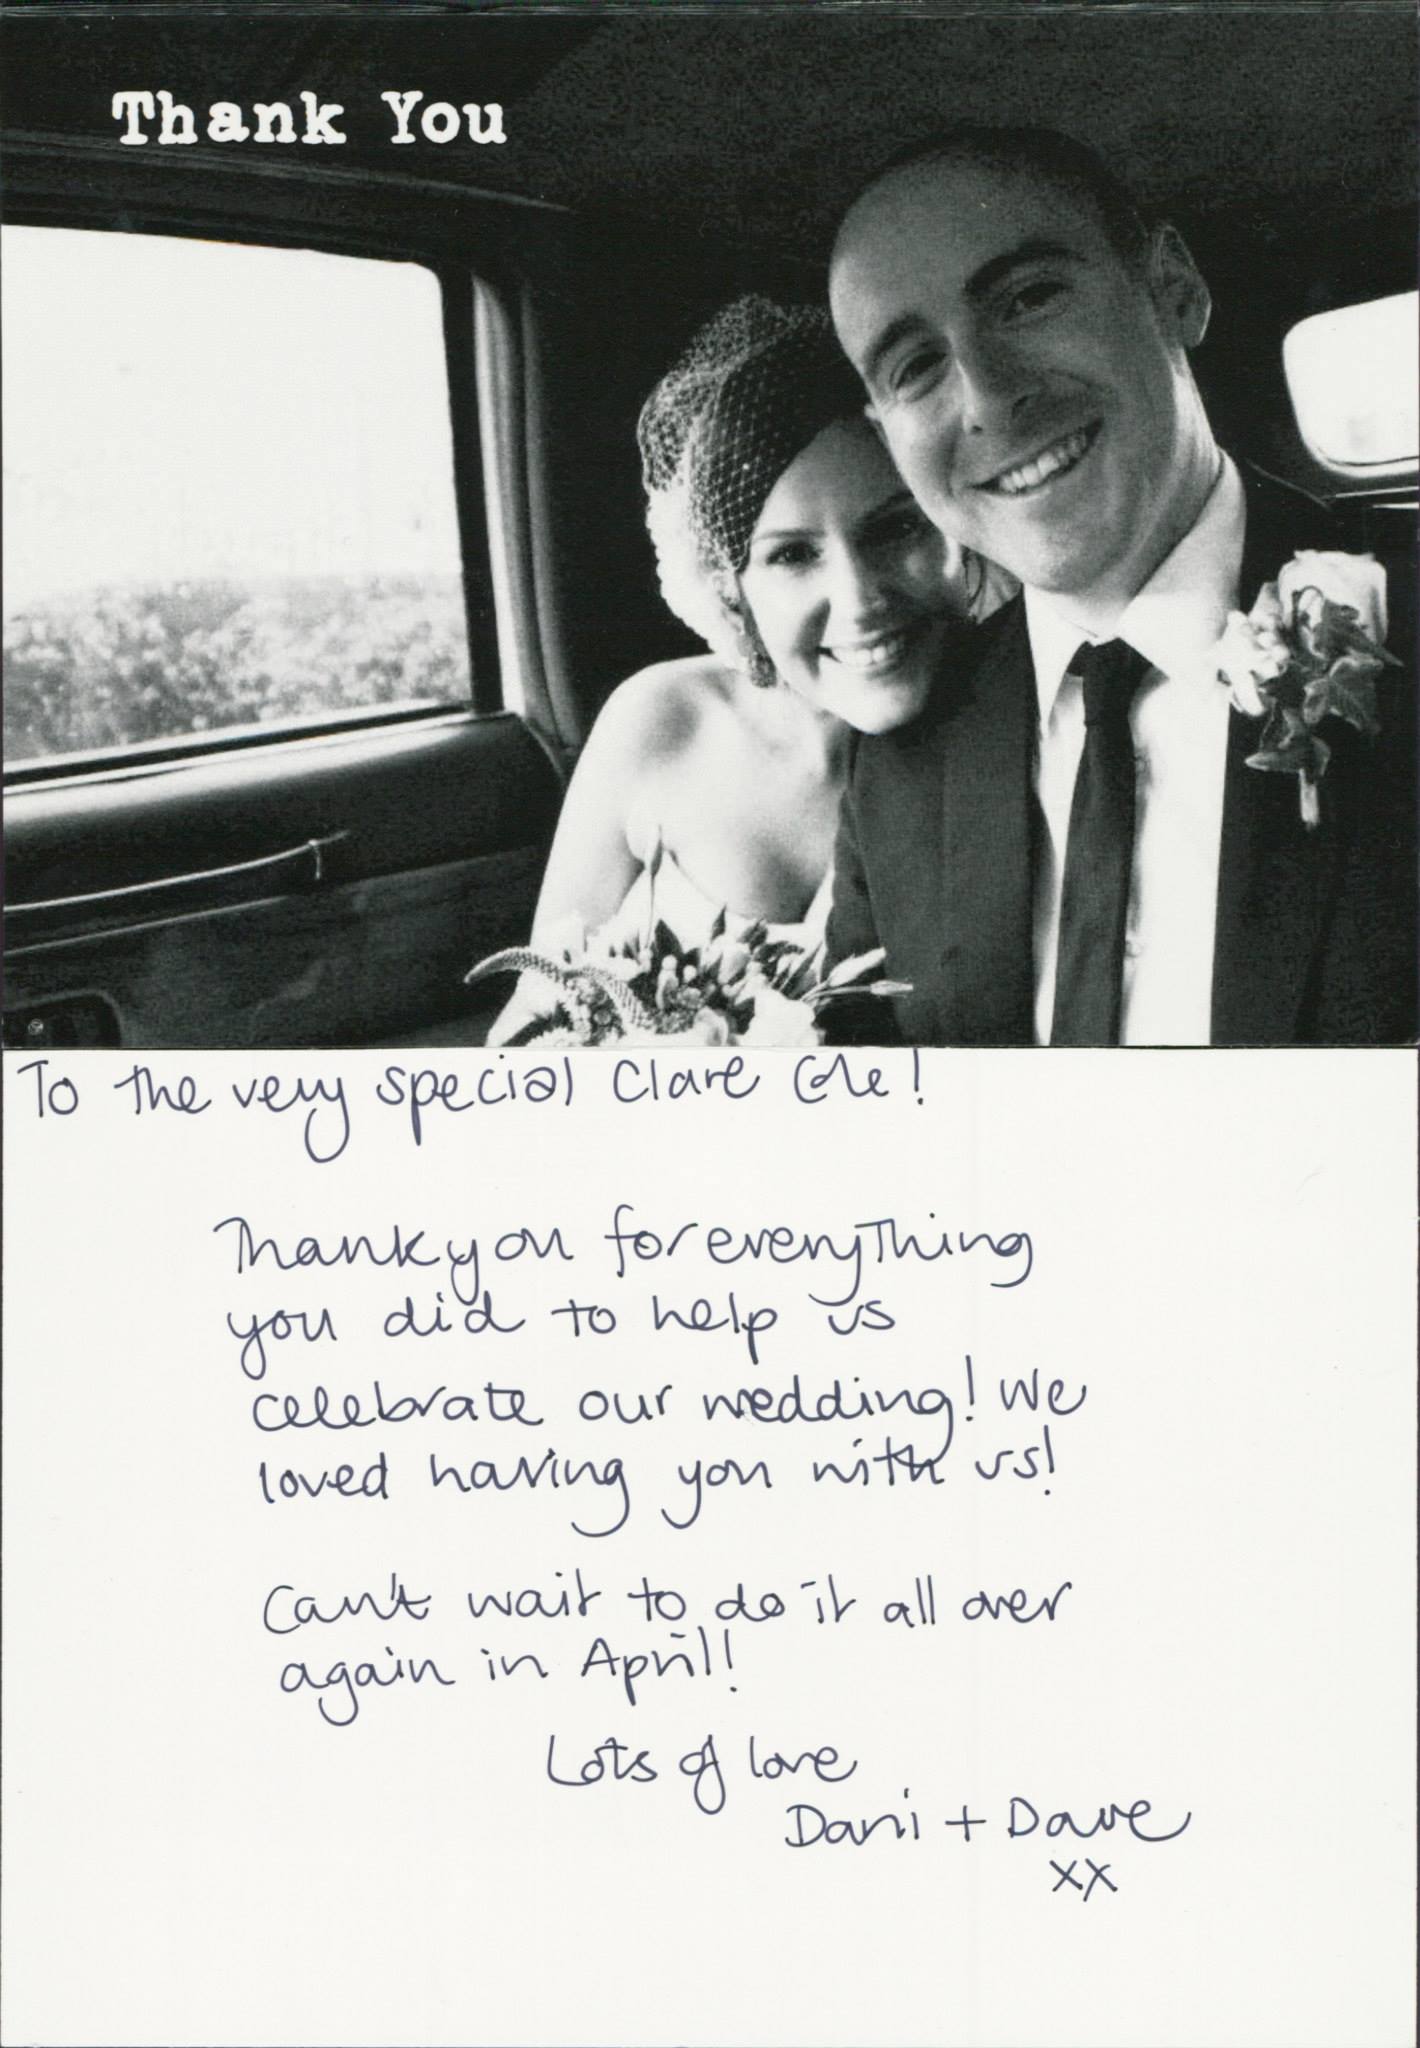 Thank You
To the very special Clare Cole!
Thankyou for everything
you did to help us
celebrate our wedding! We
loved having you with us!
Can't wait to do it all over
again in April!
Lots of love
Dani + Dave
xx